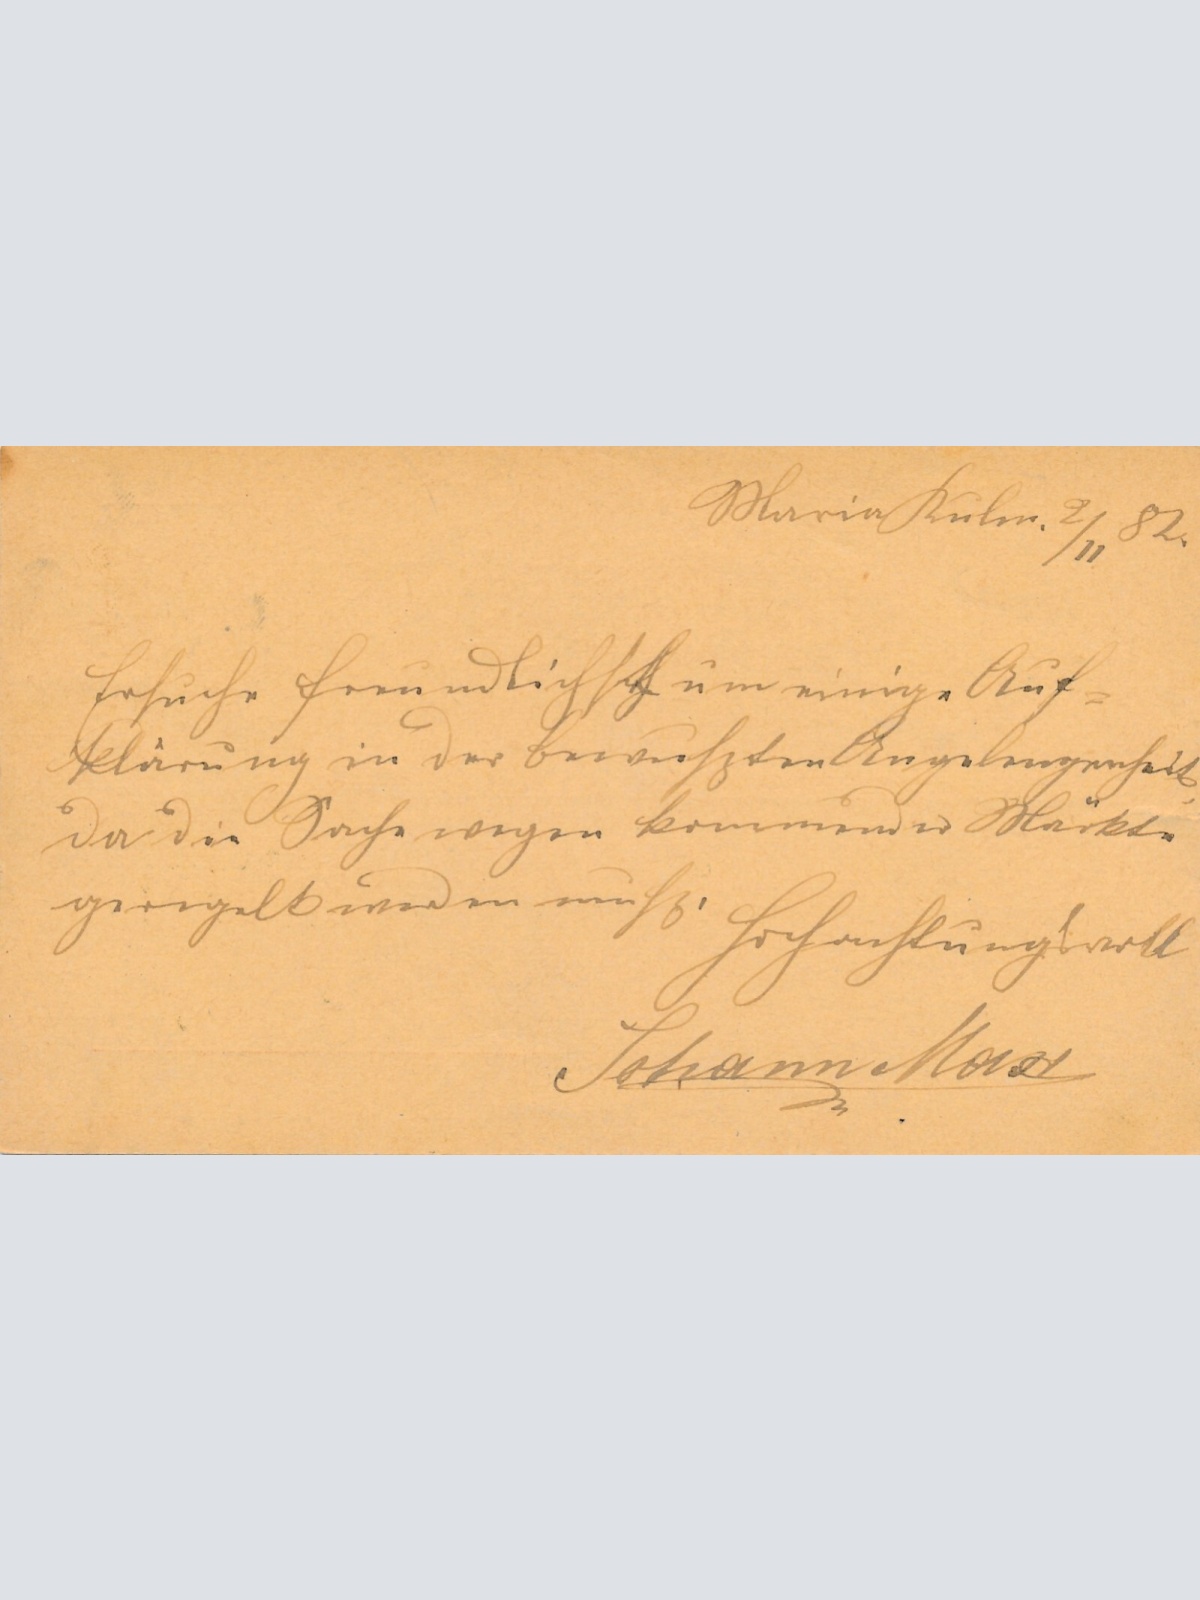 Maria Kulm. 2/11 82.
Ersuche freundlichst um einige Auf=
klärung in der bewußten Angelengenheit,
da die Sache wegen kommender Märkte
geregelt werden muß.
Hochachtungsvoll
Johann Max